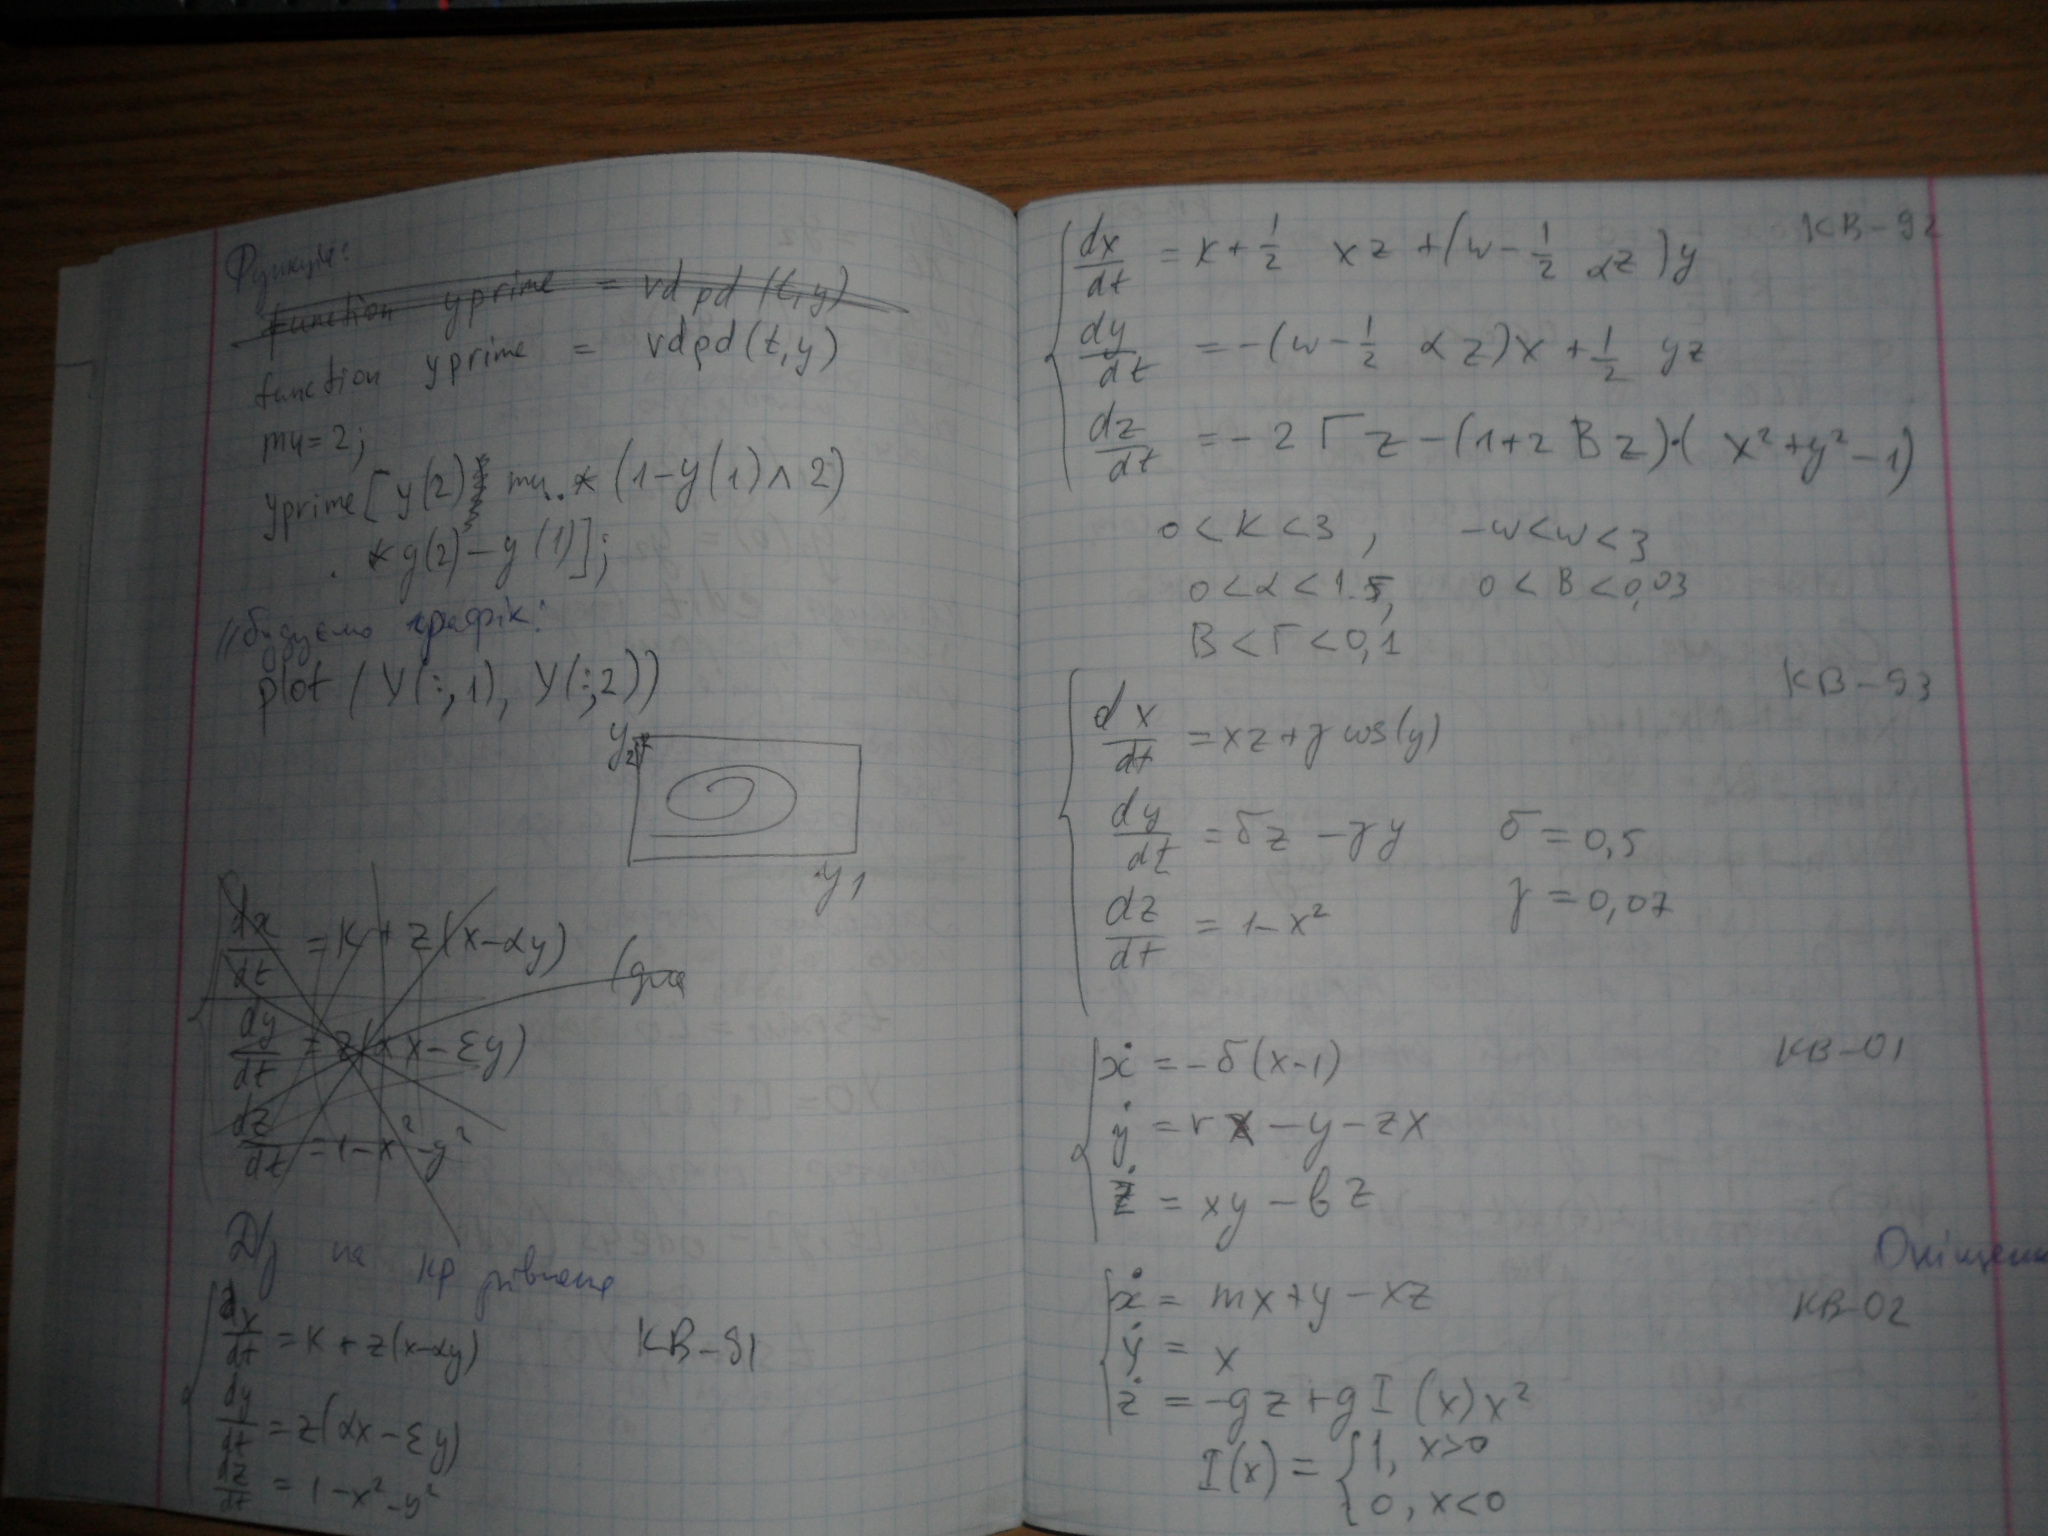 Функція:
function yprime = vdpd(t,y)
function yprime = vdpd(t,y)
mu=2;
yprime[y(2) mu.*(1-y(1)^2)
.*y(2)-y(1)];
//будуємо графік:
plot(Y(:,1), Y(:,2))
y2
y1
dx/dt = K + z(x-αy)
dy/dt = z(αx-εy)
dz/dt = 1-x²-y²
Д/з на кр рівняння
dx/dt = K + z(x-αy) KB-91
dy/dt = z(αx-εy)
dz/dt = 1-x²-y²
dx/dt = K+1/2 xz+(w-1/2 αz)y KB-92
dy/dt = -(w-1/2 αz)x+1/2 yz
dz/dt = -2Гz-(1+2Bz)·(x²+y²-1)
0<K<3, -w<w<3
0<α<1.5, 0<B<0,03
B<Г<0,1
KB-93
dx/dt = xz+γcos(y)
dy/dt = δz-γy δ=0,5
dz/dt = 1-x² γ=0,07
ẋ = -δ(x-1) KB-01
ẏ = rx-y-zx
ż = xy-bz
ẋ = mx+y-xz KB-02
ẏ = x
ż = -gz+gI(x)x²
I(x) = {1, x>0
0, x<0